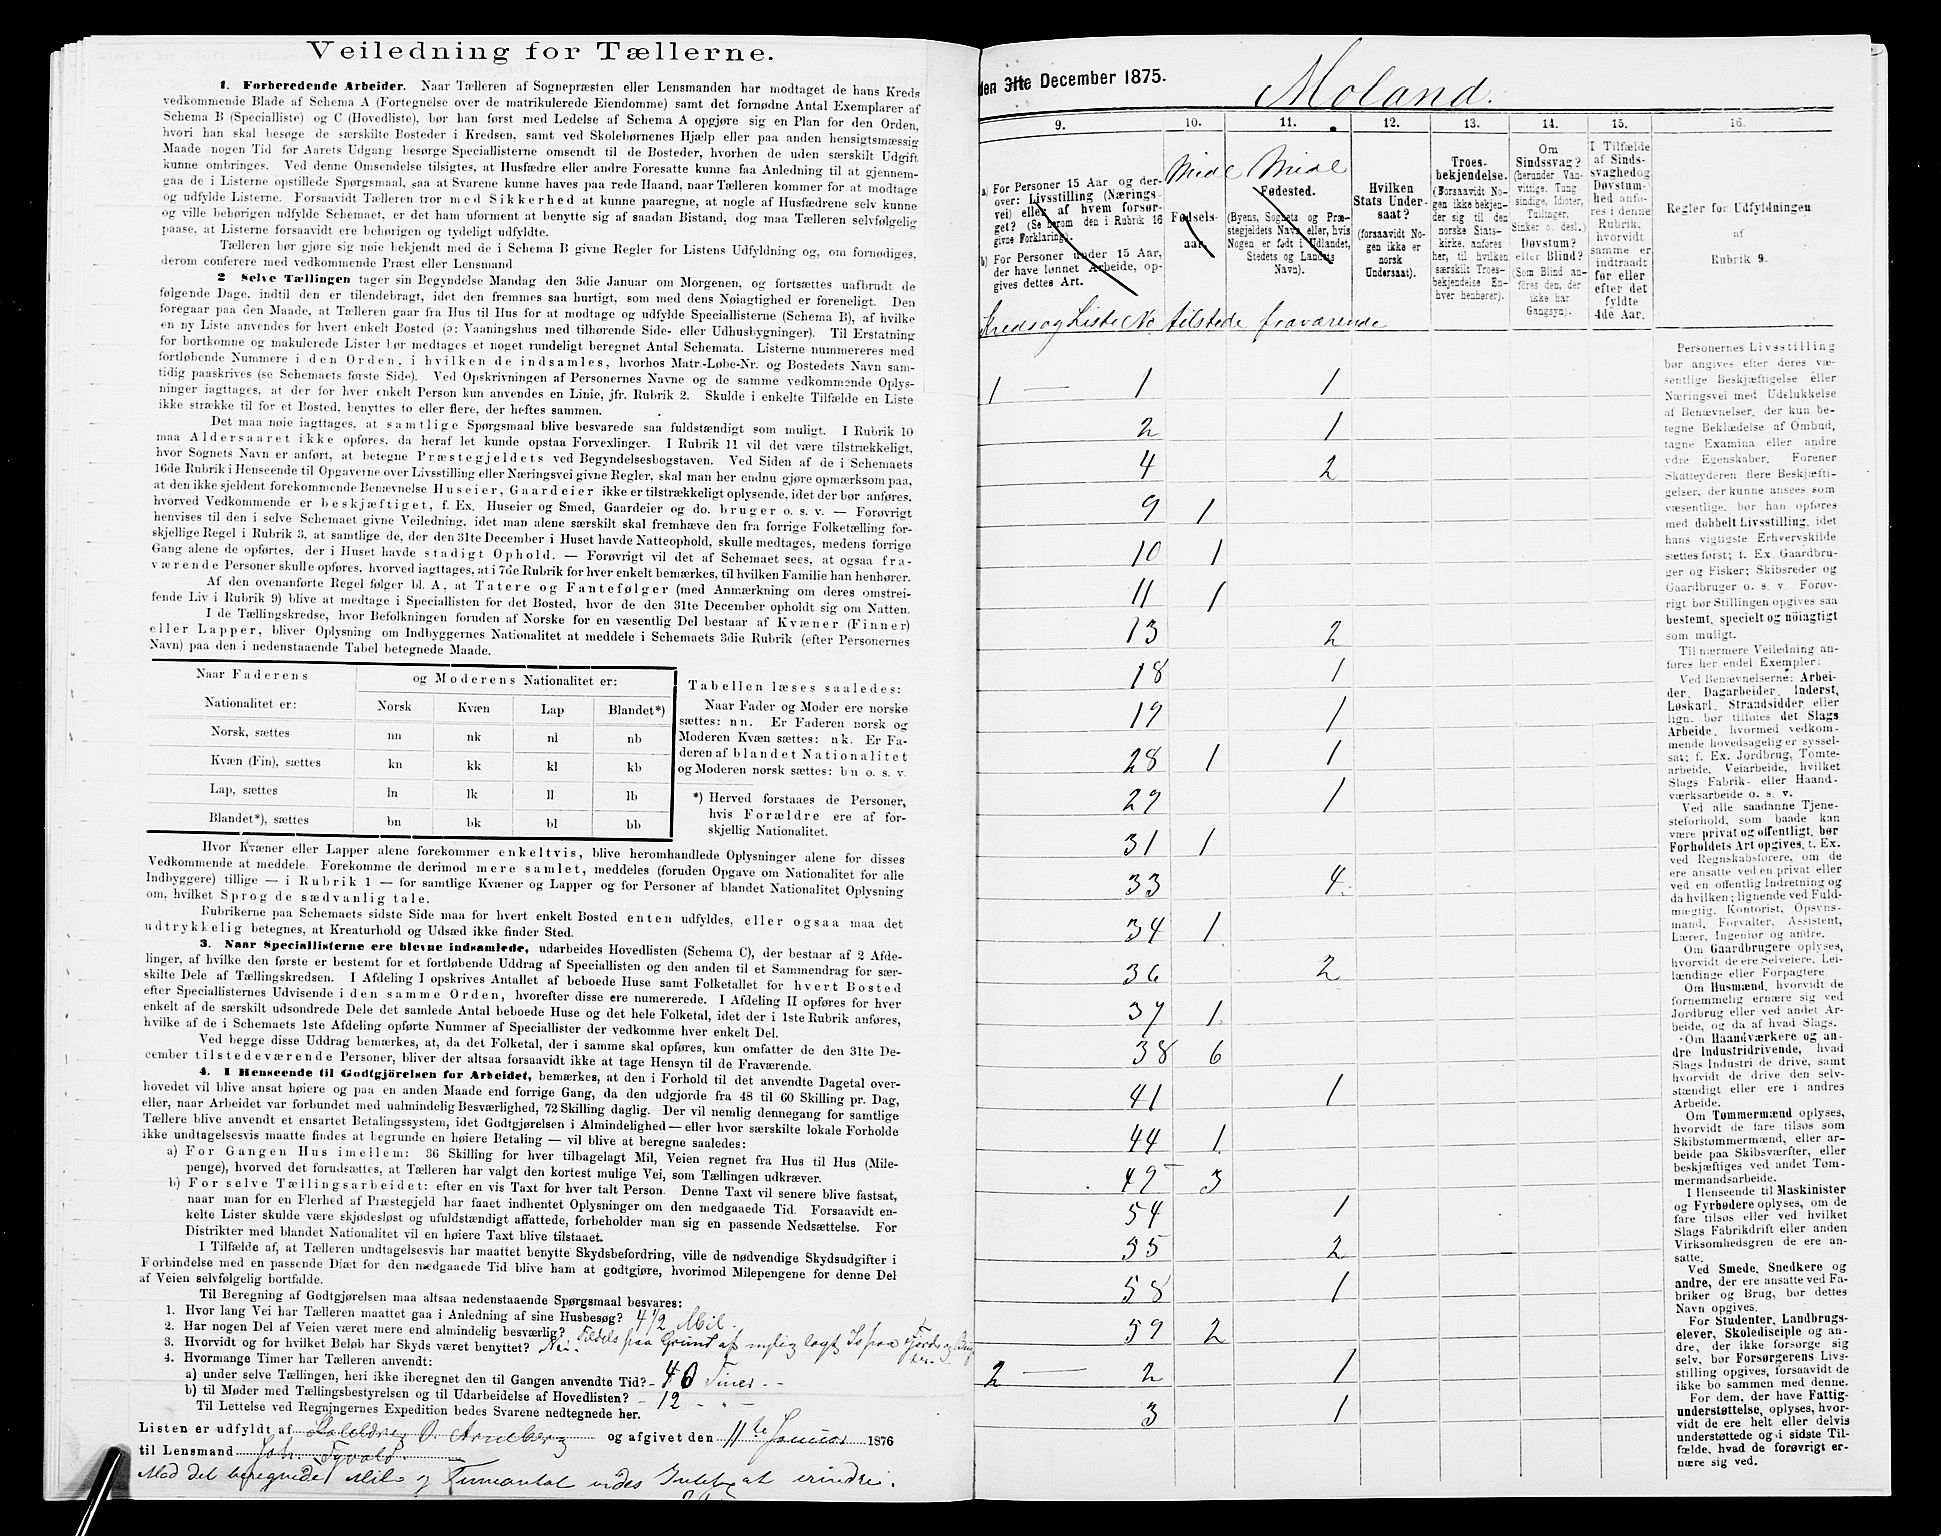 Veiledning for Tællerne.
1. Forberedende Arbeider. Naar Tælleren af Sognepræsten eller Lensmanden har modtaget de hans Kreds
vedkommende Blade af Schema A (Fortegnelse over de matrikulerede Eiendomme) samt det fornødne Antal Exemplarer af
Schema B (Specialliste) og C (Hovedliste), bør han først med Ledelse af Schema A opgjøre sig en Plan for den Orden,
hvori han skal besøge de særskilte Bosteder i Kredsen, samt ved Skolebørnenes Hjælp eller paa anden hensigtsmæssig
Maade nogen Tid før Aarets Udgang besørge Speciallisterne omsendt til de Bosteder, hvorhen de uden særskilt Udgift
kunne ombringes. Ved denne Omsendelse tilsigtes, at Husfædre eller andre Foresatte kunne faa Anledning til at gjennem-
gaa de i Listerne opstillede Spørgsmaal, saa at Svarene kunne haves paa rede Haand, naar Tælleren kommer for at modtage
og udfylde Listerne. Forsaavidt Tælleren tror med Sikkerhed at kunne paaregne, at nogle af Husfædrene selv kunne
og ville behørigen udfylde Schemaet, er det ham uformeent at benytte sig af saadan Bistand, dog maa Tælleren selvfølgelig
paase, at Listerne forsaavidt ere behørigen og tydeligt udfyldte.
Tælleren bør gjøre sig nøie bekjendt med de i Schema B givne Regler for Listens Udfyldning og, om fornødiges,
derom conferere med vedkommende Præst eller Lensmand.
2 Selve Tællingen tager sin Begyndelse Mandag den 3die Januar om Morgenen, og fortsættes uafbrudt de
følgende Dage, indtil den er tilendebragt, idet den fremmes saa hurtigt, som med dens Nøiagtighed er foreneligt. Den
foregaar paa den Maade, at Tælleren gaar fra Hus til Hus for at modtage og udfylde Speciallisterne (Schema B), af hvilke
en ny Liste anvendes for hvert enkelt Bosted (ɔ: Vaaningshus med tilhørende Side- eller Udhusbygninger). Til Erstatning
for bortkomne og makulerede Lister bør medtages et noget rundeligt beregnet Antal Schemata. Listerne nummereres med
fortløbende Nummere i den Orden, i hvilken de indsamles, hvorhos Matr.-Løbe-Nr. og Bostedets Navn sam-
tidig paaskrives (se Schemaets første Side). Ved Opskrivningen af Personernes Navne og de samme vedkommende Oplys-
ninger iagttages, at der for hver enkelt Person kun anvendes en Linie, jfr. Rubrik 2. Skulde i enkelte Tilfælde en Liste
ikke strække til for et Bosted, benyttes to eller flere, der heftes sammen.
Det maa nøie iagttages, at samtlige Spørgsmaal blive besvarede saa fuldstændigt som muligt. I Rubrik 10
maa Aldersaaret ikke opføres, da heraf let kunde opstaa Forvexlinger. I Rubrik 11 vil det være tilstrækkeligt,
hvor Sognets Navn er anført, at betegne Præstegjeldets ved Begyndelsesbogstaven. Ved Siden af de i Schemaets
16de Rubrik i Henseende til Opgaverne over Livsstilling eller Næringsvei givne Regler, skal man her endnu gjøre opmærksom paa,
at den ikke sjeldent forekommende Benævnelse Huseier, Gaardeier ikke er tilstrækkeligt oplysende, idet der bør anføres,
hvorved Vedkommende er beskjæftiget, f. Ex. Huseier og Smed, Gaardeier og do. bruger o. s. v. — Forøvrigt
henvises til den i selve Schemaet givne Veiledning, idet man alene særskilt skal fremhæve den fra forrige Folketælling for-
skjellige Regel i Rubrik 3, at samtlige de, der den 31te December i Huset havde Natteophold, skulle medtages, medens forrige
Gang alene de opførtes, der i Huset havde stadigt Ophold. — Forøvrigt vil det af Schemaet sees, at ogsaa fra-
værende Personer skulle opføres, hvorved iagttages, at i 7de Rubrik for hver enkelt bemærkes, til hvilken Familie han henhører.
Af den ovenanførte Regel følger bl. A., at Tatere og Fantefølger (med Anmærkning om deres omstrei-
fende Liv i Rubrik 9) blive at medtage i Speciallisten for det Bosted, hvor de den 31te December opholdt sig om Natten.
I de Tællingskredse, hvor Befolkningen foruden af Norske for en væsentlig Del bestaar af Kvæner (Finner)
eller Lapper, bliver Oplysning om Indbyggernes Nationalitet at meddele i Schemaets 3die Rubrik (efter Personernes
Navn) paa den i nedenstaaende Tabel betegnede Maade.
Naar Faderens og Moderens Nationalitet er:
Nationalitet er: Norsk Kvæn Lap Blandet*)
Norsk, sættes nn nk nl nb
Kvæn (Fin), sættes kn kk kl kb
Lap, sættes ln lk ll lb
Blandet*), sættes bn bk bl bb
Tabellen læses saaledes:
Naar Fader og Moder ere norske
sættes: nn. Er Faderen norsk og
Moderen Kvæn sættes: nk. Er Fa-
deren af blandet Nationalitet
og Moderen norsk sættes: bn o. s. v.
*) Herved forstaaes de Personer,
hvis Forældre ere af for-
skjellig Nationalitet.
Hvor Kvæner eller Lapper alene forekommer enkeltvis, blive heromhandlede Oplysninger alene for disses
Vedkommende at meddele. Forekomme de derimod mere samlet, meddeles (foruden Opgave om Nationalitet for alle
Indbyggere) tillige — i Rubrik 1 — for samtlige Kvæner og Lapper og for Personer af blandet Nationalitet Oplysning
om, hvilket Sprog de sædvanlig tale.
Rubrikerne paa Schemaets sidste Side maa for hvert enkelt Bosted enten udfyldes, eller ogsaa maa det
udtrykkelig betegnes, at Kreaturhold og Udsæd ikke finder Sted.
3. Naar Speciallisterne ere blevne indsamlede, udarbeides Hovedlisten (Schema C), der bestaar af 2 Afde-
linger, af hvilke den første er bestemt for et fortløbende Uddrag af Speciallisten og den anden til et Sammendrag for sær-
skilte Dele af Tællingskredsen. I Afdeling I opskrives Antallet af beboede Huse samt Folketallet for hvert Bosted
efter Speciallisternes Udvisende i den samme Orden, hvorefter disse ere numererede. I Afdeling II opføres for hver
enkelt af de særskilt udsondrede Dele det samlede Antal beboede Huse og det hele Folketal, idet der i 1ste Rubrik anføres,
hvilke af de i Schemaets 1ste Afdeling opførte Nummer af Speciallister der vedkomme hver enkelt Del.
Ved begge disse Uddrag bemærkes, at, da det Folketal, der i samme skal opføres, kun omfatter de den 31te De-
cember tilstedeværende Personer, bliver der altsaa forsaavidt ikke at tage Hensyn til de Fraværende.
4. I Henseende til Godtgjörelsen for Arbeidet, bemærkes, at den i Forhold til det anvendte Dagetal over-
hovedet vil blive ansat høiere og paa en anden Maade end forrige Gang, da den udgjorde fra 48 til 60 Skilling pr. Dag,
eller, naar Arbeidet var forbundet med ualmindelig Besværlighed, 72 Skilling daglig. Der vil nemlig dennegang for samtlige
Tællere blive anvendt et ensartet Betalingssystem, idet Godtgjörelsen i Almindelighed — eller hvor særskilte lokale Forholde
ikke undtagelsesvis maatte findes at begrunde en høiere Betaling — vil blive at beregne saaledes:
a) For Gangen Hus imellem: 36 Skilling for hver tilbagelagt Mil, Veien regnet fra Hus til Hus (Mile-
penge), hvorved det forudsættes, at Tælleren har valgt den kortest mulige Vei, som Tællingen udkræver.
b) For selve Tællingsarbeidet: efter en vis Taxt for hver talt Person. Denne Taxt vil senere blive fastsat,
naar man for en Flerhed af Præstegjeld har faaet indhentet Oplysninger om den medgaaede Tid. Forsaavidt en-
kelte Lister skulde være skjødesløst og ufuldstændigt affattede, forbeholder man sig en passende Nedsættelse. For
Distrikter med blandet Nationalitet vil en høiere Taxt blive tilstaaet.
I Tilfælde af, at Tælleren undtagelsesvis har maattet benytte Skydsbefordring, ville de nødvendige Skydsudgifter i
Forbindelse med en passende Diæt for den medgaaede Tid blive ham at godtgjøre, hvorimod Milepengene for denne Del
af Veien selvfølgelig bortfalde.
Til Beregning af Godtgjörelsen maa altsaa nedenstaaende Spørgsmaal besvares:
1. Hvor lang Vei har Tælleren maattet gaa i Anledning af sine Husbesøg? 4 1/2 Mil.
2. Har nogen Del af Veien været mere end almindelig besværlig? Tildels paa Grund af
3. Hvorvidt og for hvilket Beløb har Skyds været benyttet? Nei.
4. Hvormange Timer har Tælleren anvendt:
a) under selve Tællingen, heri ikke iberegnet den til Gangen anvendte Tid? - 40 Timer - -
b) til Møder med Tællingsbestyrelsen og til Udarbeidelse af Hovedlisten? - 12 - " -
Til Lettelse ved Regningernes Expedition bedes Svarene nedtegnede her.
Listen er udfyldt af O. Arneberg og afgivet den 11te Januar 1876
til Lensmand Joh.
Med det beregnede Mile og Timeantal vides Intet at erindre.
den 31te December 1875.
Moland.
9. 10. 11. 12. 13. 14. 15. 16.
a) For Personer 15 Aar og der-
over: Livsstilling (Nærings-
vei) eller af hvem forsør-
get? (Se herom den i Rubrik 16
givne Forklaring).
b) For Personer under 15 Aar,
der have lønnet Arbeide, op-
gives dettes Art.
Fødsels-
aar.
Fødested.
(Byens, Sognets og Præ-
stegjeldets Navn, eller, hvis
Nogen er født i Udlandet,
Stedets og Landets
Navn).
Hvilken
Stats Under-
saat?
(forsaavidt No-
gen ikke er
norsk
Undersaat).
Troes-
bekjendelse.
(Forsaavidt No-
gen ikke bekjen-
der sig til den
norske Stats-
kirke, anføres
her, til hvilken
særskilt Troes-
bekjendelse En-
hver henhører).
Om
Sindssvag?
(herunder Van-
vittige, Tung
sindige, Idioter,
Tullinger,
Sinker o. desl.).
Døvstum?
eller Blind?
(Som Blind an-
föres den, der
ikke har
Gangsyn).
I Tilfælde
af Sinds-
svaghed og
Døvstum-
hed anfø-
res i denne
Rubrik,
hvorvidt
samme er
indtraadt
før eller
efter det
fyldte
4de Aar.
Regler for Udfyldningen
af
Rubrik 9.
Kreds og Liste No tilstede fraværende
1 — 1 1
2 1
4 2
9 1
10 1
11 1
13 2
18 1
19 1
28 1 1
29 1
31 1
33 4
34 1
36 2
37 1
38 6
41 1
44 1
49 3
54 1
55 2
58 1
59 2
2 — 2 1
3 1
Personernes Livsstilling
bør angives efter deres væ-
sentlige Beskjæftigelse eller
Næringsvei med Udelukkelse
af Benævnelser, der kun be-
tegne Beklædelse af Ombud,
tagne Examina eller andre
ydre Egenskaber. Forener
Skatteyderen flere Beskjæfti-
gelser, der kunne ansees som
væsentlige, bør han opføres
med dobbelt Livsstilling, idet
hans vigtigste Erhvervskilde
sættes først; f. Ex. Gaardbru-
ger og Fisker; Skibsreder og
Gaardbruger o. s. v. Forøv-
rigt bør Stillingen opgives saa
bestemt, specielt og nöiagtigt
som muligt.
Til nærmere Veiledning an-
føres her endel Exempler:
Ved Benævnelserne: Arbei-
der, Dagarbeider, Inderst,
Løskarl, Strandsidder eller
lign. bør tilføies det Slags
Arbeide, hvormed vedkom-
mende hovedsagelig er syssel-
sat; f. Ex. Jordbrug, Tomte-
arbeide, Veiarbeide, hvilket
Slags Fabrik- eller Haand-
værksarbeide o. s. v.
Ved alle saadanne Tjene-
steforhold, som baade kan
være privat og offentligt, bør
Forholdets Art opgives, f. Ex.
ved Regnskabsførere, om de
ere ansatte ved en privat eller
ved en offentlig Indretning og
da hvilken; lignende ved Fuld-
mægtig, Kontorist, Opsyns-
mand, Forvalter, Assistent,
Lærer, Ingeniør og andre.
Om Gaardbrugere oplyses,
hvorvidt de ere Selveiere, Lei-
lændinge eller Forpagtere.
Om Husmænd, hvorvidt de
fornemmelig ernære sig ved
Jordbrug eller ved andet Ar-
beide, og da af hvad Slags.
Om Haandværkere og an-
dre Industridrivende, hvad
Slags Industri de drive, samt
hvorvidt de drive den selv-
stændigt eller ere i andres
Arbeide.
Om Tømmermænd oplyses,
hvorvidt de fare tilsøs som
Skibstømmermænd, eller ar-
beide paa Skibsværfter, eller
beskjæftiges ved andet Tøm-
mermandsarbeide.
I Henseende til Maskinister
og Fyrbødere oplyses, om de
fare tilsøs eller ved hvilket
Slags Fabrikdrift eller anden
Virksomhedsgren de ere an-
satte.
Ved Smede, Snedkere og
andre, der ere ansatte ved Fa-
briker og Brug, bør dettes
Navn opgives.
For Studenter, Landbrugs-
elever, Skoledisciple og an-
dre, der ikke forsørge sig
selv, bør Forsørgerens Livs-
stilling opgives, forsaavidt de
ikke bo sammen med denne.
For dem, der have Fattig-
understøttelse, oplyses, hvor-
vidt de ere helt eller delvis
understøttede og i sidste Til-
fælde, hvad de forøvrigt er-
nære sig ved.